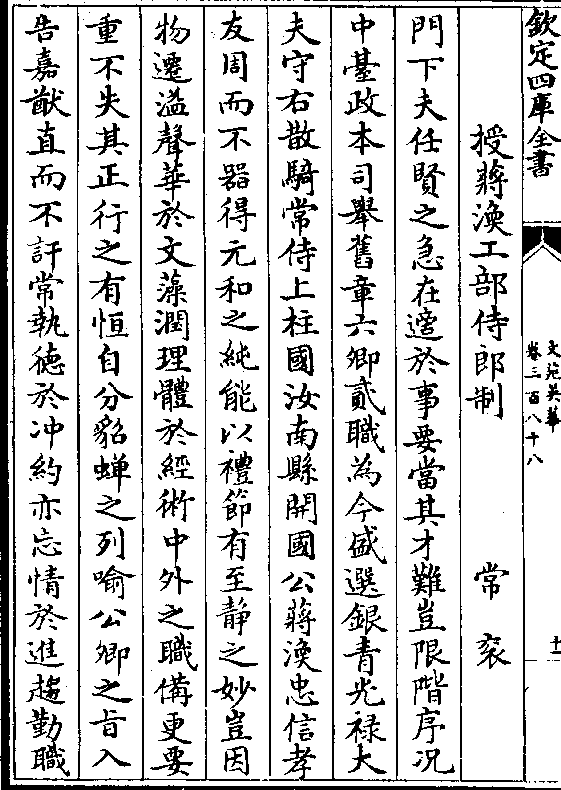 欽定四庫全書
文苑英華
卷三百八十八
十一
授蔣渙工部侍郎制
常衮
門下夫任賢之急在適於事要當其才難豈限階序况
中臺政本司舉舊章六卿貳職為今盛選銀青光禄大
夫守右散騎常侍上柱國汝南縣開國公蔣渙忠信孝
友周而不器得元和之純能以禮節有至静之妙豈因
物遷溢聲華於文藻潤理體於經術中外之職備更要
重不失其正行之有恒自分貂蟬之列喻公卿之旨入
告嘉猷直而不訐常執德於冲約亦忘情於進趨勤職